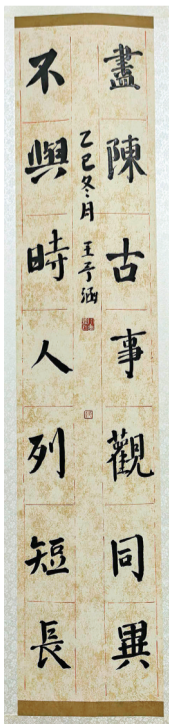 盡陳古事觀同異
不與時人列短長
乙巳冬月 王予涵